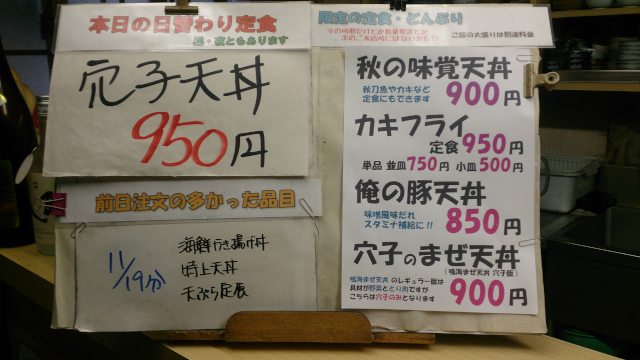 本日の日替わり定食
昼・夜ともあります
穴子天丼
950円
前日注文の多かった品目
11/19分
海鮮行き揚げ丼
特上天丼
天ぷら定食
限定の定食・どんぶり
ご飯の大盛りは別途料金
秋の味覚天丼
秋刀魚やカキなど
定食にもできます
900円
カキフライ
定食950円
単品 並皿750円 小皿500円
俺の豚天丼
味噌風味だれ
スタミナ補給に!!
850円
穴子のまぜ天丼
(鳴海まぜ天丼 穴子版)
鳴海まぜ天丼 のレギュラー版は
具材が野菜ととり肉ですが
こちらは穴子のみとなります
900円